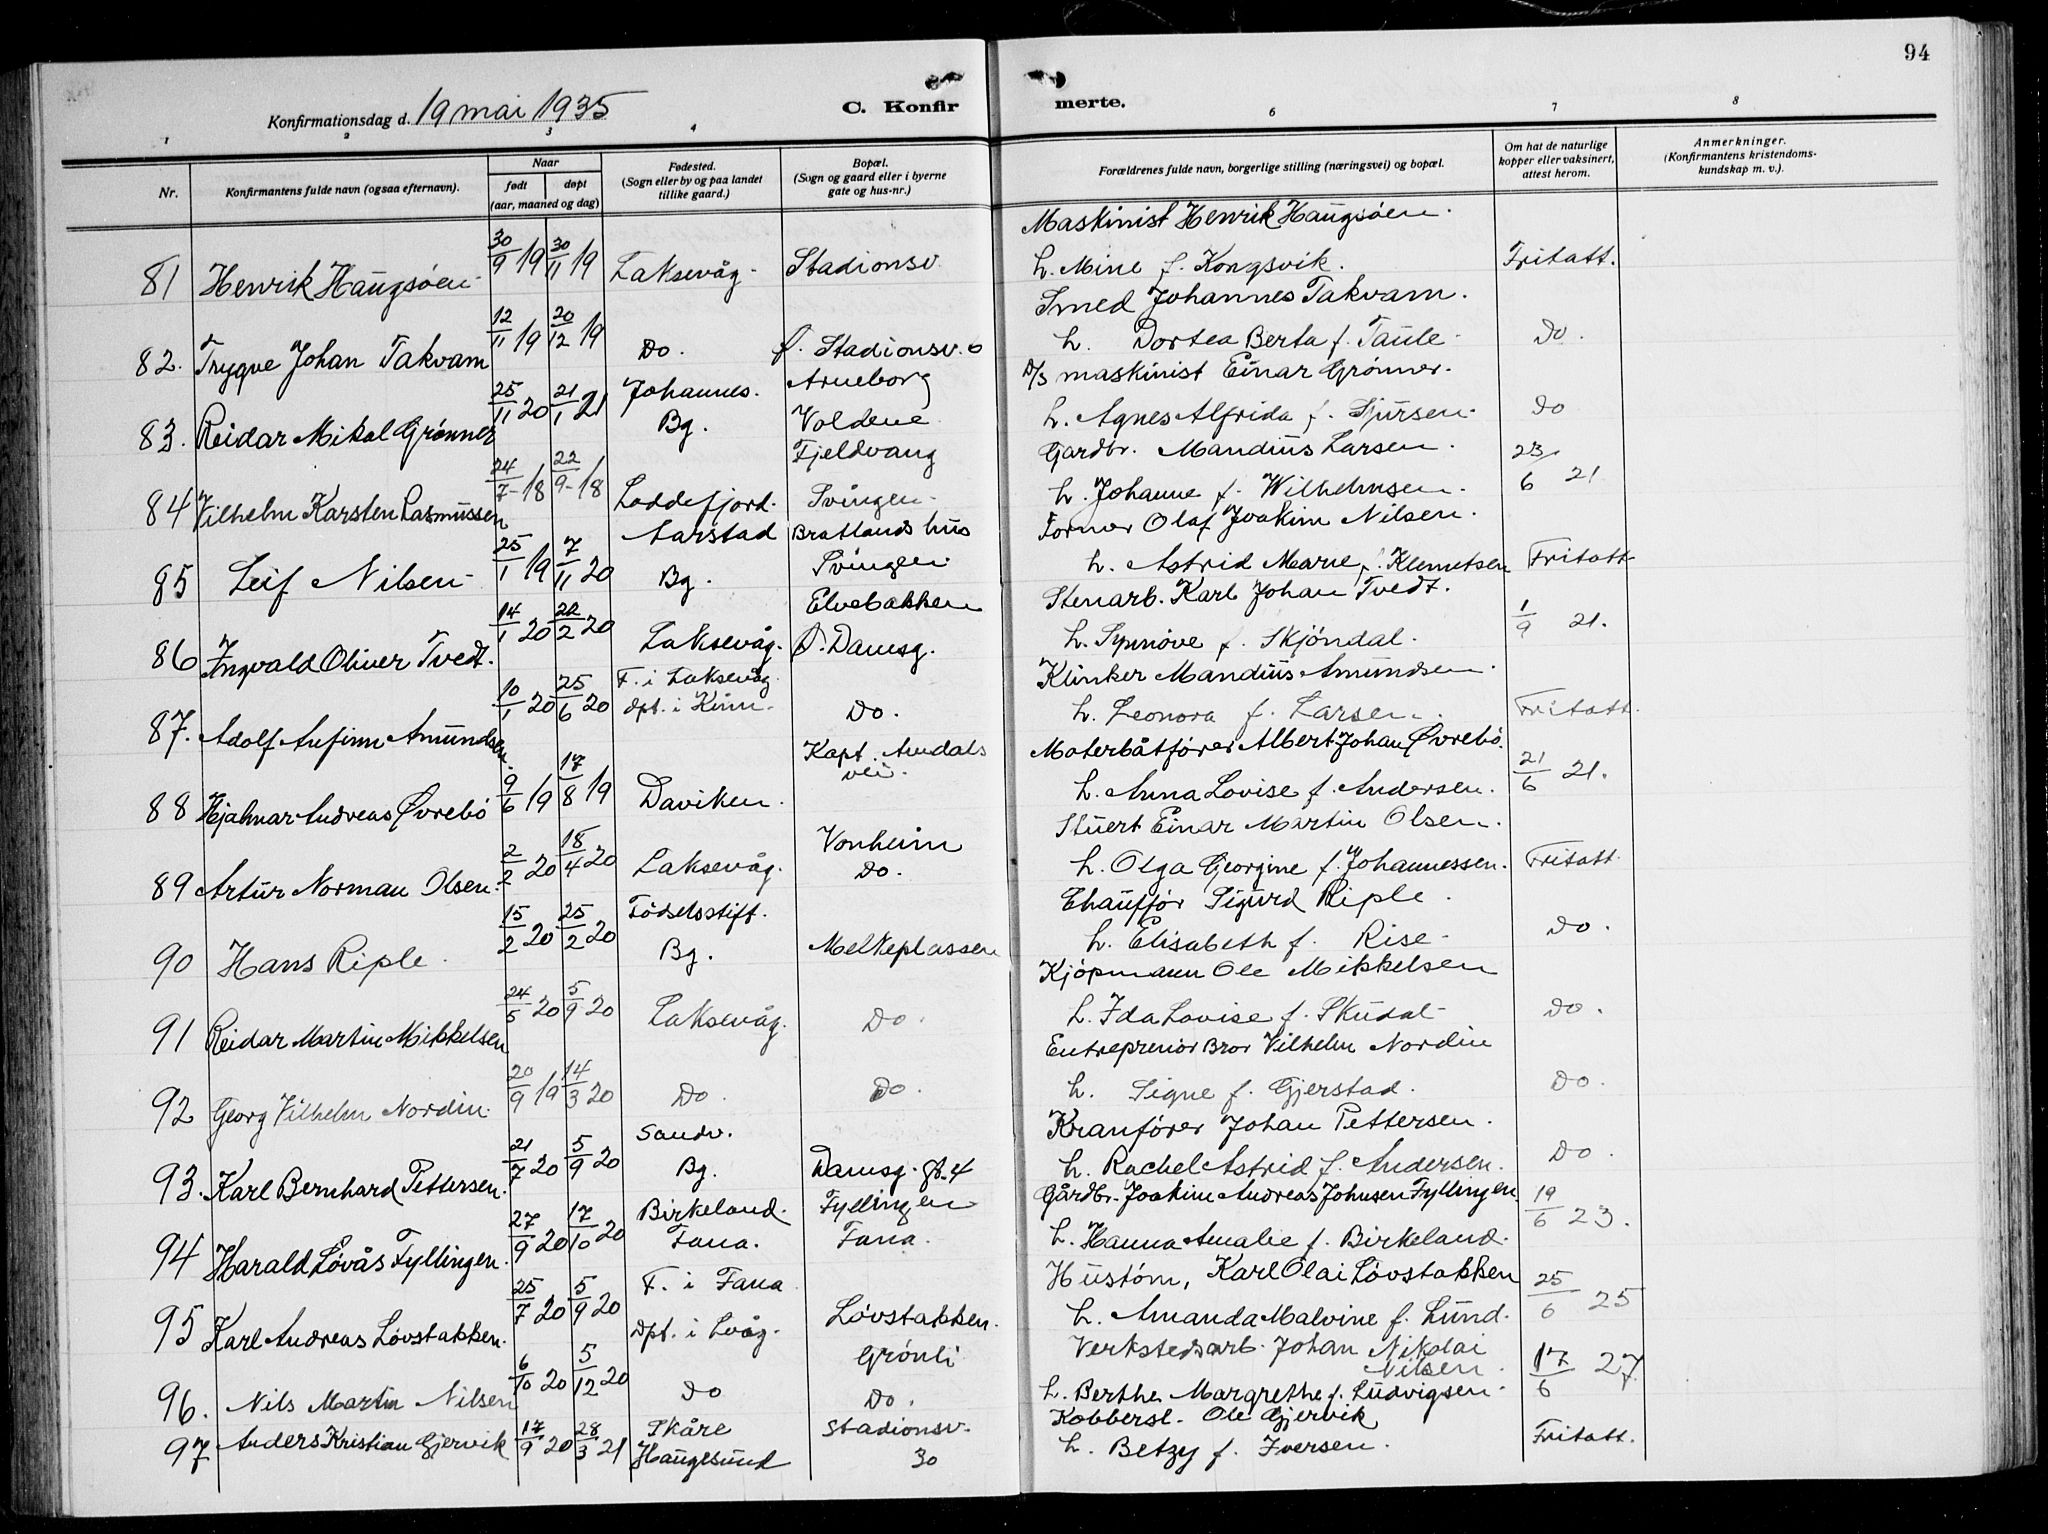 94
Konfirmationsdag d. 19 mai 1935
C. Konfirmerte.
1 2 3 4 6 7 8
Nr.
Konfirmantens fulde navn (ogsaa efternavn).
Naar
født døpt
(aar, maaned og dag)
Fødested.
(Sogn eller by og paa landet
tillike gaard.)
Bopæl.
(Sogn og gaard eller i byerne
gate og hus-nr.)
Forældrenes fulde navn, borgerlige stilling (næringsvei) og bopæl.
Om hat de naturlige
kopper eller vaksinert,
attest herom.
Anmerkninger.
(Konfirmantens kristendoms-
kundskap m. v.).
Maskinist Henrik Haugsøen.
81 Henrik Haugsøen 30/9 19 30/11 19 Laksevåg. Stadionsv. h. Mine f. Kongsvik. Fritatt.
Smed Johannes Takvam.
82. Trygve Johan Takvam 12/11 19 20/12 19 Do. Stadionsv. 6 h. Dortea Berta f. Taule. Do.
Johannes. Arneborg D/S maskinist Einar Grønner.
83. Reidar Mikal Grønner 25/11 20 21/1 21 Bg. Voldene h. Agnes Alfrida f. Sjursen. Do
Fjeldvang Gardbr. Mandius Larsen.
84 Vilhelm Karsten Rasmussen 24/7 18 22/9 18 Loddefjord. Svingen. h. Johanne f. Wilhelmsen. 23/6 21
Aarstad Bratlands hus Former Olaf Joakim Nilsen.
85 Leif Nilsen 25/1 19 7/11 20 Bg. Svingen h. Astrid Marie f. Klemetsen Fritatt
Elvebakken Stenarb. Karl Johan Tvedt.
86 Ingvald Oliver Tvedt. 14/1 20 22/2 20 Laksevåg. Ø. Damsg. h. Synnøve f. Skjøndal. 1/9 21.
F. i Laksevåg Klinker Mandius Amundsen.
87. Adolf Anfinn Amundsen. 10/1 20 25/6 20 dpt. i Kinn. Do. h. Leonora f. Larsen. Fritatt.
Kapt. Amdals vei. Moterbåtfører Albert Johan Øvrebø.
88 Hjalmar Andreas Øvrebö 9/6 19 17/8 19 Daviken. h. Anna Lovise f. Andersen. 21/6 21.
Vonheim Stuert Einar Martin Olsen.
89 Artur Norman Olsen. 2/2 20 18/4 20 Laksevåg. Do. h. Olga Georgine f. Johannessen. Fritatt.
Fødselsstift. Chauffør Sigurd Riple.
90 Hans Riple. 15/2 20 25/2 20 Bg. Melkeplassen h. Elisabeth f. Rise Do.
Kjøpmann Ole Mikkelsen
91 Reidar Martin Mikkelsen 24/5 20 5/9 20 Laksevåg. Do. h. Ida Lovise f. Skudal Do.
Entreprenior Bror Vilhelm Nordin
92 Georg Vilhelm Nordin. 20/9 19 14/3 20 Do. Do. h. Signe f. Gjerstad. Do.
Sandv. Kranfører Johan Pettersen.
93. Karl Bernhard Pettersen. 21/7 20 5/9 20 Bg. Damsg. gt. 4 h. Rachel Astrid f. Andersen. Do.
Birkeland. Fyllingen Gårdbr. Joakim Andreas Johnsen Fyllingen.
94 Harald Løvås Fyllingen. 27/9 20 17/10 20 Fana. Fana. h. Hanna Amalie f. Birkeland. 19/6 23.
F. i Fana Hustøm, Karl Olai Løvstakken
95 Karl Andreas Løvstakken. 25/7 20 5/9 20 Dpt. i Lvåg. Løvstakken. h. Amanda Malvine f. Lund. 25/6 25
Grønli Verkstedsarb. Johan Nikolai Nilsen.
96. Nils Martin Nilsen 6/10 20 5/12 20 Do Do. h. Berthe Margrethe f. Ludvigsen. 17/6 27
Skåre Stadionsv. Kobbersl. Ole Gjervik
97 Anders Kristian Gjervik 17/9 20 28/3 21 Haugesund 30 h. Betzy f. Iversen. Fritatt.